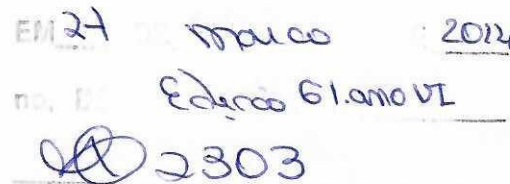 EM 27 março 2014
no, Edição 61.ano VI
2303